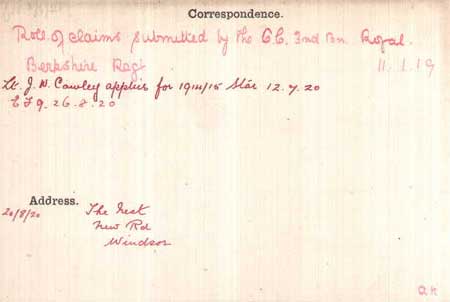 Correspondence.
Roll of claims submitted by the O.C. 2nd Bn. Royal
Berkshire Regt 11.1.19
Lt. J. D. Cawley applies for 1914/15 Star 12.7.20
E F 9. 26.8.20
Address.
20/8/20 The Nest
New Rd
Windsor